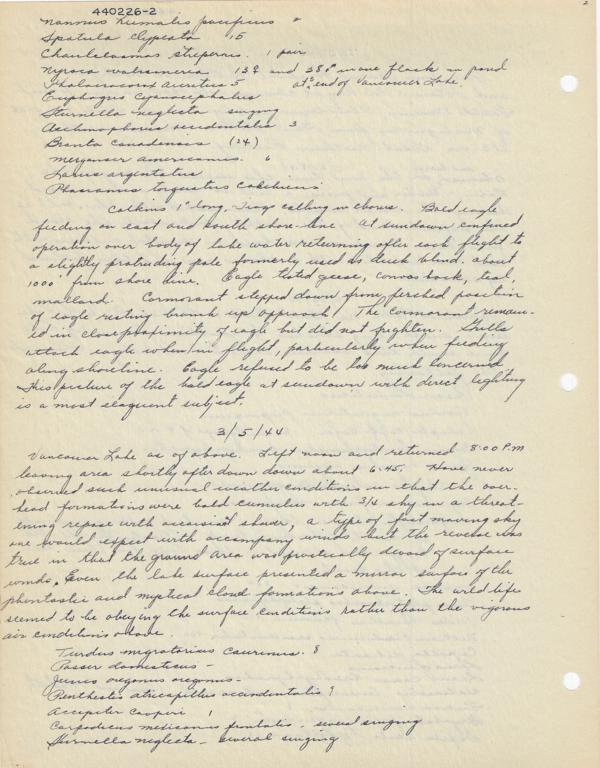 440226-2
2
Nannus hiemalis pacificus "
Spatula clypeata 15
Chaulelasmus streperus. 1 pair
Nyroca valisineria 13♀ and 38♂ in one flock in pond
Phalacrocorax auritus 5 at S. end of Vancouver Lake.
Euphagus cyanocephalus
Sturnella neglecta singing
Aechmophorus occidentalis 3
Branta canadensis (24)
Merganser americanus. 6
Larus argentatus
Phasianus torquatus colchicus
Catkins 1" long, Frogs calling in chorus. Bald eagle
feeding on east and south shore-line. At sundown confined
operation over body of lake water returning after each flight to
a slightly protruding pole formerly used as duck blind, about
1000' from shore line. Eagle tested geese, canvas back, teal,
mallard. Cormorant stepped down from perched position
of eagle resting branch upon approach. The cormorant remain-
ed in close proximity of eagle but did not frighten. Gulls
attack eagle when in flight, particularly when feeding
along shoreline. Eagle refused to be too much concerned
This picture of the bald eagle at sundown with direct lighting
is a most eloquent subject.
3/5/44
Vancouver Lake as of above. Left noon and returned 8:00 P.M
leaving area shortly after down down about 6:45. Have never
observed such unusual weather conditions in that the over-
head formations were bold cumulus with 3/4 sky in a threat-
ening repose with occasional shower, a type of fast moving sky
one would expect with accompany winds but the reverse was
true in that the ground area was practically devoid of surface
winds. Even the lake surface presented a mirror surface of the
phantastic and mystical cloud formations above. The wild life
seemed to be obeying the surface conditions rather than the vigorous
air conditions above.
Turdus migratorius caurinus. 8
Passer domesticus -
Junco oreganus oreganus -
Penthestes atricapillus occidentalis 9
Accipiter cooperi 1
Carpodacus mexicanus frontalis - several singing
Sturnella neglecta - several singing